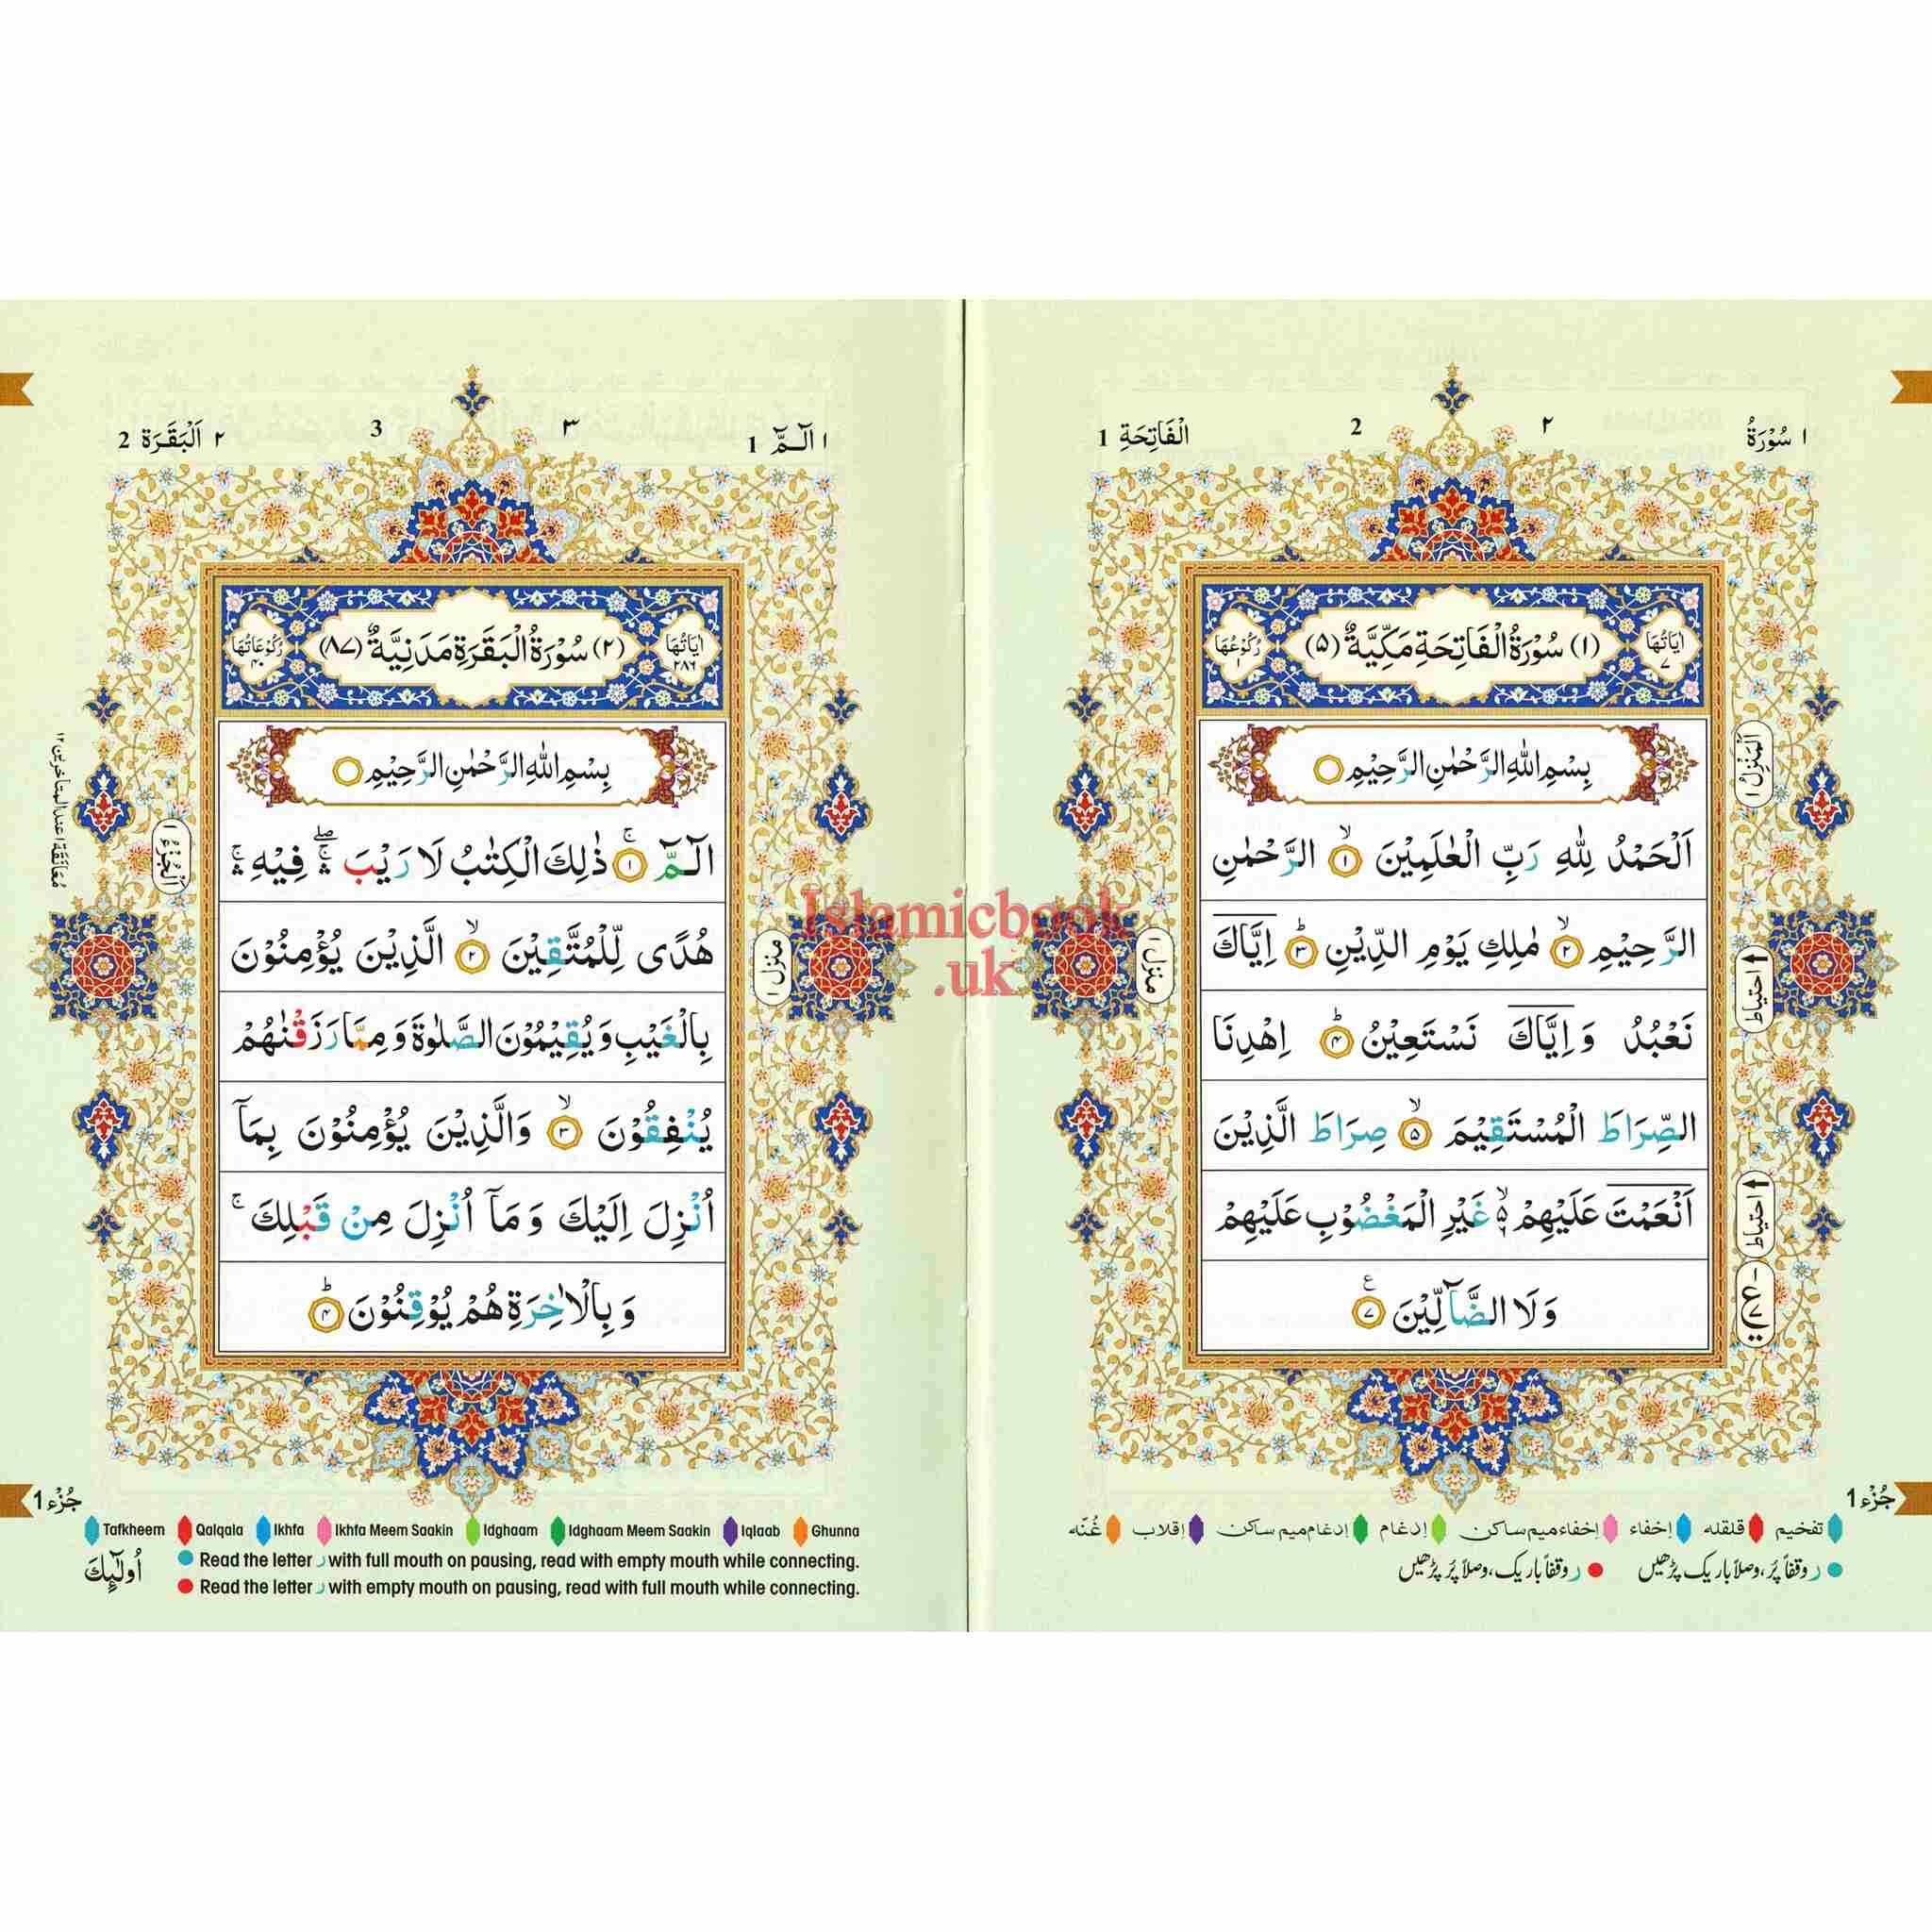 ١ سُوْرَةُ
٢
2
الْفَاتِحَةِ 1
اٰيَاتُهَا ٧
(١) سُوْرَةُ الْفَاتِحَةِ مَكِّيَّةٌ (٥)
رُكُوْعُهَا ١
بِسْمِ اللّٰهِ الرَّحْمٰنِ الرَّحِيْمِ ○
اَلْحَمْدُ لِلّٰهِ رَبِّ الْعٰلَمِيْنَ ۙ﴿١﴾ الرَّحْمٰنِ
الرَّحِيْمِ ۙ﴿٢﴾ مٰلِكِ يَوْمِ الدِّيْنِ ؕ﴿٣﴾ اِيَّاكَ
نَعْبُدُ وَ اِيَّاكَ نَسْتَعِيْنُ ؕ﴿٤﴾ اِهْدِنَا
الصِّرَاطَ الْمُسْتَقِيْمَ ۙ﴿٥﴾ صِرَاطَ الَّذِيْنَ
اَنْعَمْتَ عَلَيْهِمْ ۙ۬ غَيْرِ الْمَغْضُوْبِ عَلَيْهِمْ
وَ لَا الضَّآلِّيْنَ ﴿٧﴾ ع
اَلْمَنْزِلُ ١
احتياط
احتياط
منزل ١
جُزْء 1
تفخیم قلقله إخفاء إخفاء میم ساکن إدغام إدغام میم ساکن إقلاب غُنّه
ر وقفاً پُر، وصلاً باریک پڑھیں ر وقفاً باریک، وصلاً پُر پڑھیں
١ الٓـمّٓ 1
٣
3
٢ اَلْبَقَرَة 2
اٰيَاتُهَا ٢٨٦
(٢) سُوْرَةُ الْبَقَرَةِ مَدَنِيَّةٌ (٨٧)
رُكُوْعَاتُهَا ٤٠
بِسْمِ اللّٰهِ الرَّحْمٰنِ الرَّحِيْمِ ○
الٓـمّٓ ۚ﴿١﴾ ذٰلِكَ الْكِتٰبُ لَا رَيْبَ ۛۖ فِيْهِ ۛۚ
هُدًى لِّلْمُتَّقِيْنَ ۙ﴿٢﴾ الَّذِيْنَ يُؤْمِنُوْنَ
بِالْغَيْبِ وَ يُقِيْمُوْنَ الصَّلٰوةَ وَ مِمَّا رَزَقْنٰهُمْ
يُنْفِقُوْنَ ۙ﴿٣﴾ وَالَّذِيْنَ يُؤْمِنُوْنَ بِمَآ
اُنْزِلَ اِلَيْكَ وَ مَآ اُنْزِلَ مِنْ قَبْلِكَ ۚ
وَ بِالْاٰخِرَةِ هُمْ يُوْقِنُوْنَ ؕ﴿٤﴾
منزل ١
اَلْجُزْءُ ١
مُعَانَقَة ١ عند المتاخرین ١٢
جُزْء 1
Tafkheem Qalqala Ikhfa Ikhfa Meem Saakin Idghaam Idghaam Meem Saakin Iqlaab Ghunna
Read the letter ر with full mouth on pausing, read with empty mouth while connecting.
Read the letter ر with empty mouth on pausing, read with full mouth while connecting.
اُولٰٓئِكَ
Islamicbook
.uk